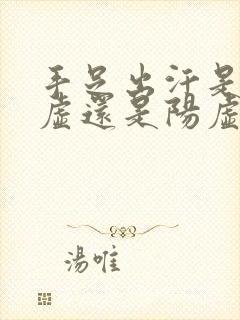 手足出汗是
虛還是陽虛
湯唯